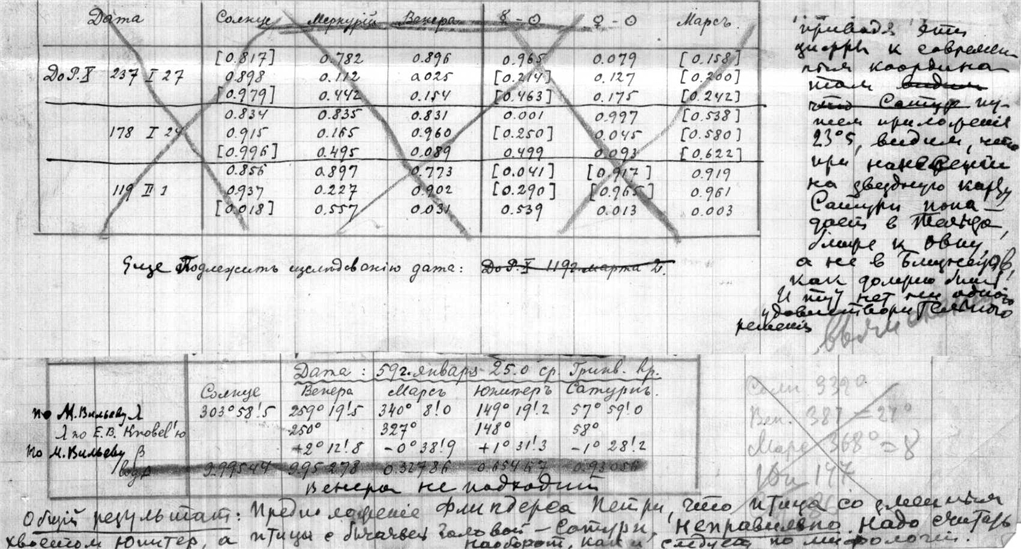 Дата Солнце Меркурій Венера ☿-☉ ♀-☉ Марсъ
[0.817] 0.782 0.896 0.965 0.079 [0.158]
До Р.Х 237 I 27 0.898 0.112 0.025 [0.214] 0.127 [0.200]
[0.979] 0.442 0.154 [0.463] 0.175 [0.242]
0.834 0.835 0.831 0.001 0.997 [0.538]
178 I 24 0.915 0.165 0.960 [0.250] 0.045 [0.580]
[0.996] 0.495 0.089 0.499 0.093 [0.622]
0.856 0.897 0.773 [0.041] [0.917] 0.919
119 II 1 0.937 0.227 0.902 [0.290] [0.965] 0.961
[0.018] 0.557 0.031 0.539 0.013 0.003
Еще Подлежитъ изслѣдованію дата: До Р.Х 119 г. марта 2.
приводя эти
цифры к современ
ным координа
там видим
что Сатур пу
тем приложенія
23°5, видим, что
при нанесеніи
на звездную карту
Сатурн попа-
дает в Тельца,
ближе к Овну,
а не в Близнецов,
как должно быть
И тут нет ни одного
удовлетворительного
решенія
Дата: 59 г. января 25.0 ср. Гринв. вр.
Солнце Венера Марсъ Юпитеръ Сатурнъ.
по М. Вильеву λ 303°58!5 259°19!5 340°8!0 149°19!2 57°59!0
λ по Е.В. 250° 327° 148° 58°
по М. Вильеву β +2°12!8 -0°38!9 +1°31!3 -1°28!2
9.99544 0.32786
Венера не подходит
Вен. 387 = 27°
Марс 368° = 8
Юп 147
Общій результат: Предположеніе Флиндерса Петри, что птица со змеиным
хвостом Юпитер, а птицы с бычачьей головой - Сатурн, неправильно. Надо считать
наоборот, как и следует по мифологіи.